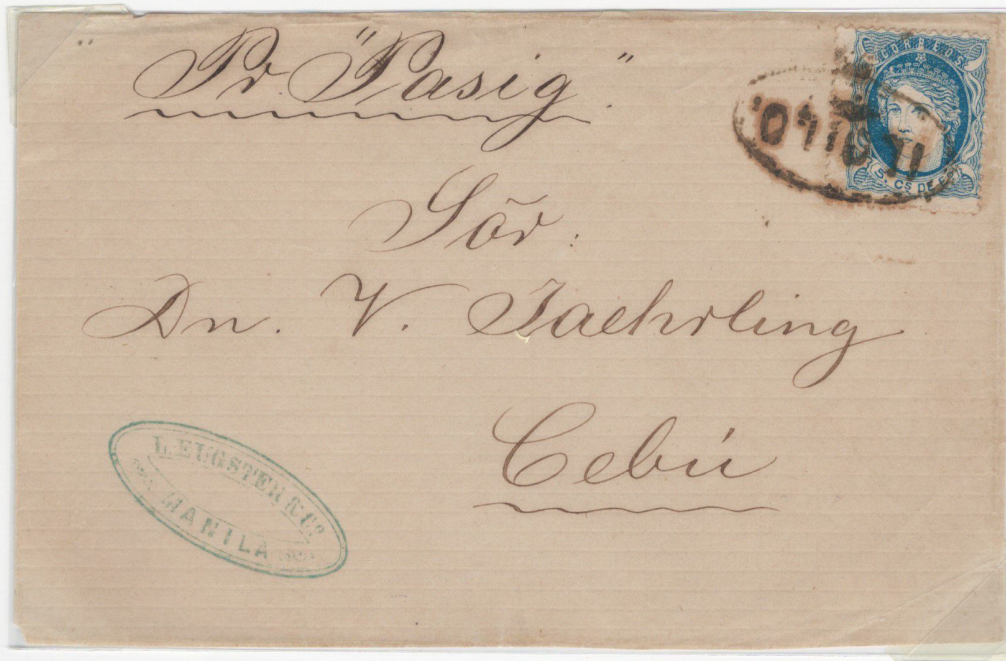 Pr "Pasig".
CORREOS.
5. Cs DE
Sōr.
Dn. V. Jaehrling
Cebú
L. EUGSTER & Co
MANILA